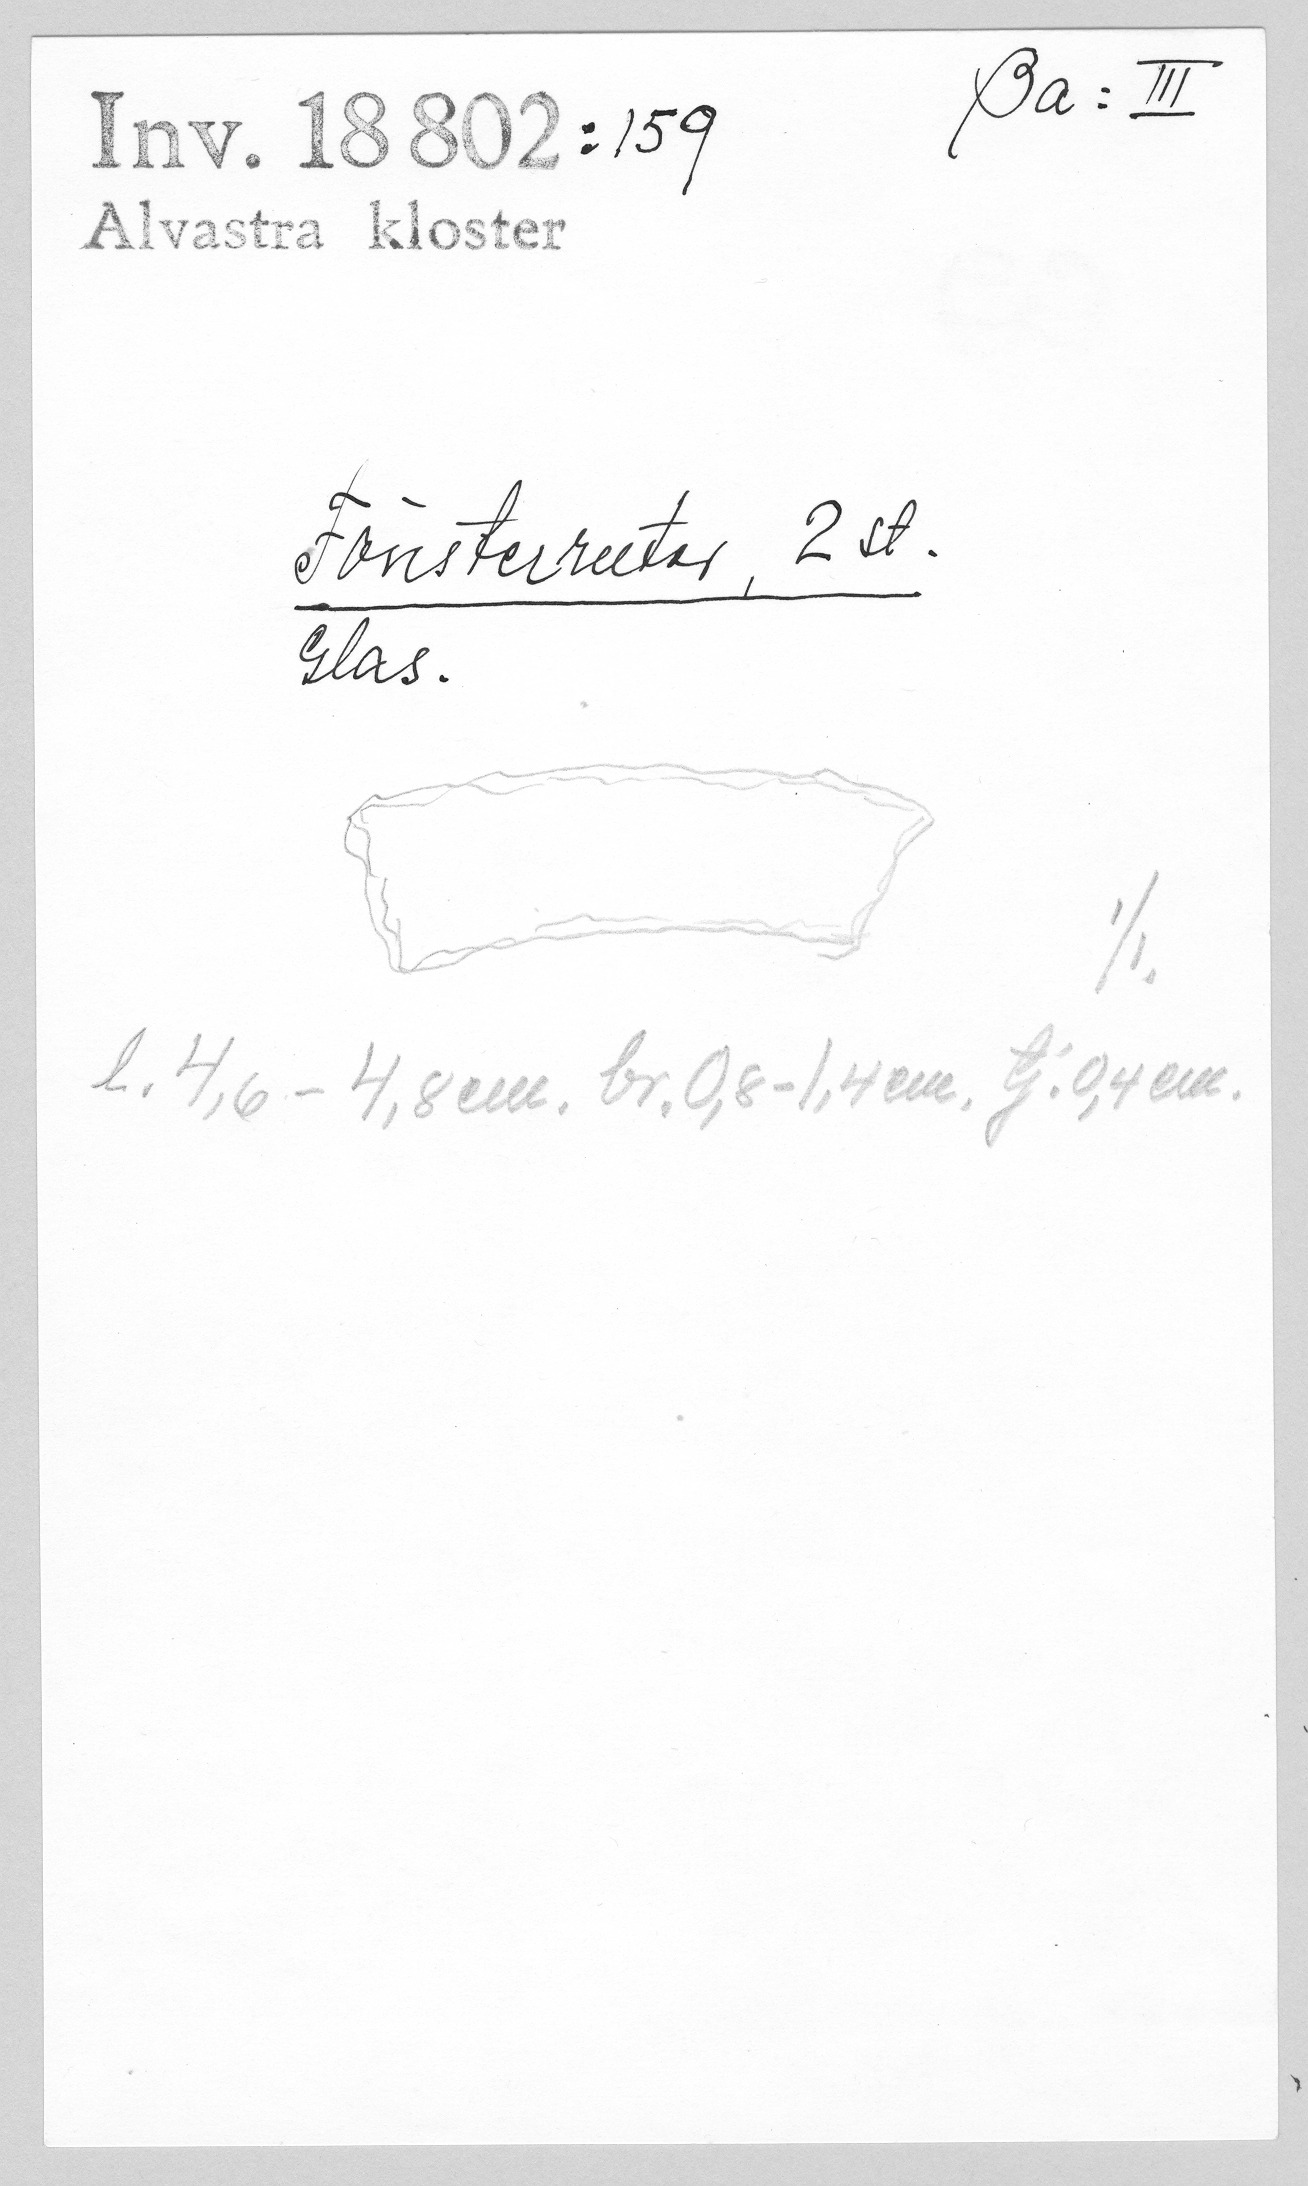 Inv. 18 802:159
βa: III
Alvastra kloster
Fönsterrutor, 2 st.
Glas.
1/1.
l. 4,6 - 4,8 cm. br. 0,8 - 1,4 cm. tj. 0,4 cm.